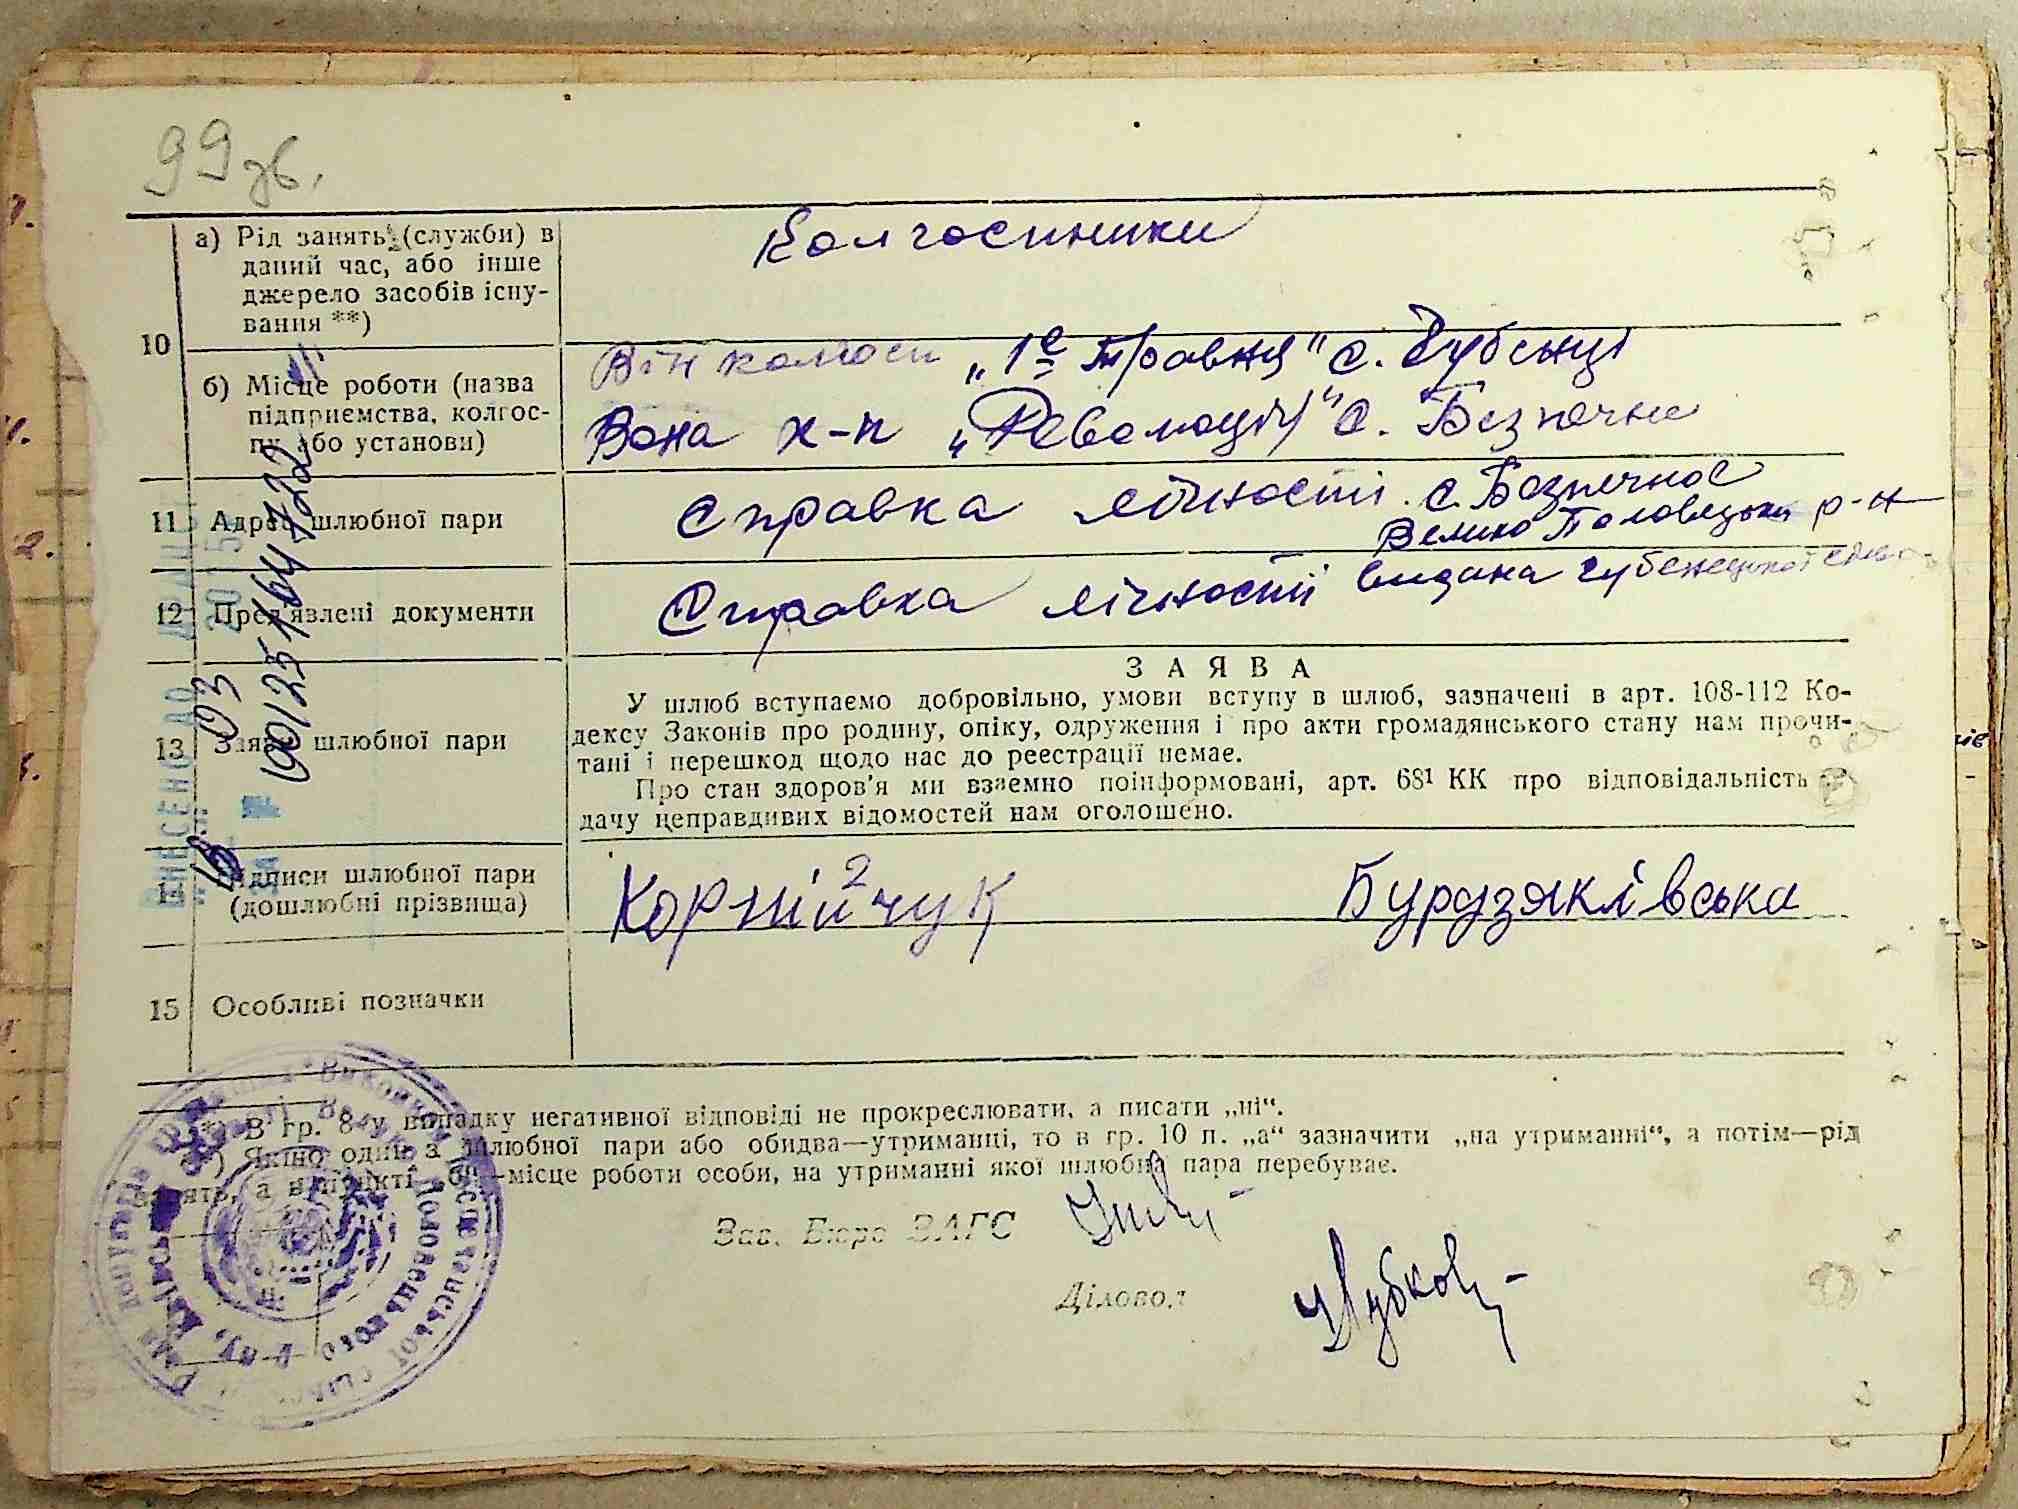 99 зв.
10
а) Рід занять (служби) в
даний час, або інше
джерело засобів існу-
вання **)
Колгоспники
б) Місце роботи (назва
підприємства, колгос-
пу або установи)
Він колгосп „1е Травня" с. Чубенці
Вона к-п „Революції" с. Безпечне
11 Адреса шлюбної пари
Справка лічності с. Безпечное
Велико Половецьки р-н
12 Пред'явлені документи
Справка лічності видана Чубенецької
13 Заява шлюбної пари
ЗАЯВА
У шлюб вступаємо добровільно, умови вступу в шлюб, зазначені в арт. 108-112 Ко-
дексу Законів про родину, опіку, одруження і про акти громадянського стану нам прочи-
тані і перешкод щодо нас до реєстрації немає.
Про стан здоров'я ми взаємно поінформовані, арт. 68¹ КК про відповідальність
дачу неправдивих відомостей нам оголошено.
14 Підписи шлюбної пари
(дошлюбні прізвища)
Корнійчук Бурузяклівська
15 Особливі позначки
*) В гр. 8 у випадку негативної відповіді не прокреслювати, а писати „ні".
**) Якщо один з шлюбної пари або обидва—утриманці, то в гр. 10 п. „а" зазначити „на утриманні", а потім—рід
занять, а в пункті „б"—місце роботи особи, на утриманні якої шлюбна пара перебуває.
Зав. Бюро ЗАГС
Діловод
ВНЕСЕНО ДО
03
00125164722